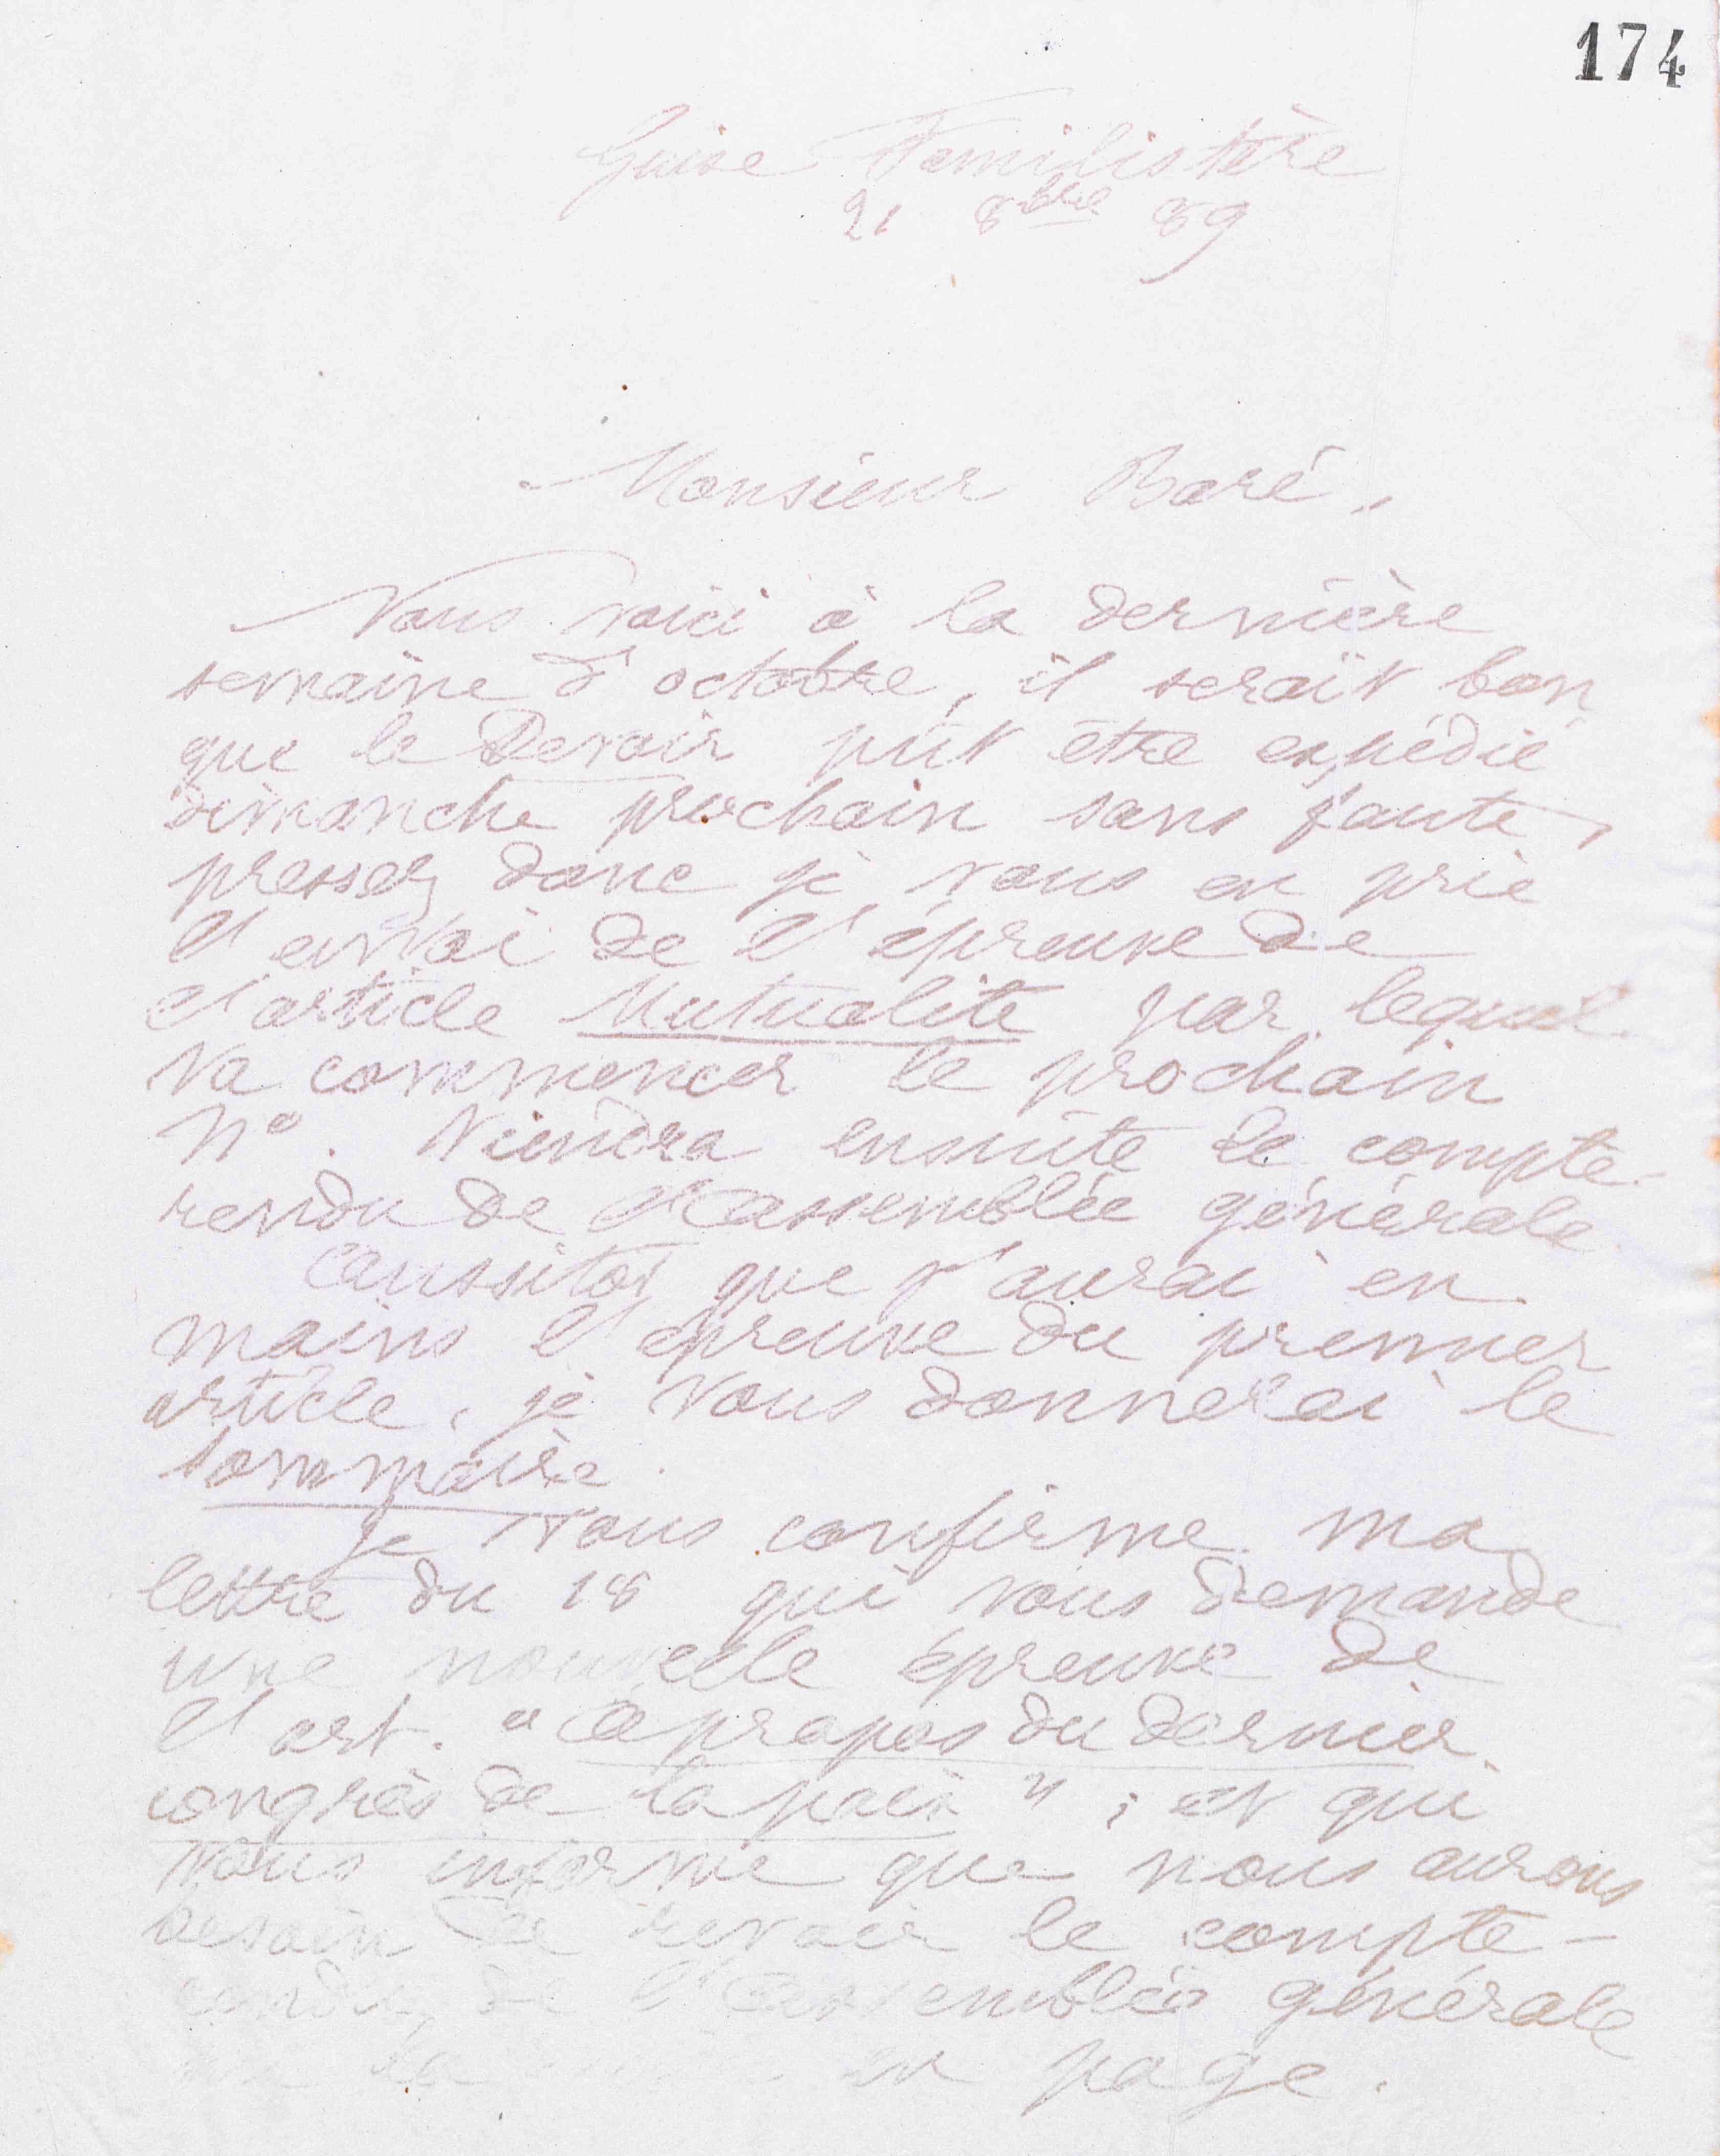 174
Guise Familistère
21 8bre 89
Monsieur Baré,
Nous voici à la dernière
semaine d'octobre, il serait bon
que le Devoir pût être expédié
dimanche prochain sans faute,
pressez donc je vous en prie
l'envoi de l'épreuve de
l'article Mutualité par lequel
va commencer le prochain
No. Viendra ensuite le compte-
rendu de l'assemblée générale
Aussitôt que j'aurai en
mains l'épreuve du premier
article, je vous donnerai le
sommaire.
Je vous confirme ma
lettre du 18 qui vous demande
une nouvelle épreuve de
l'art. "A propos du dernier
congrès de la paix" ; et qui
vous informe que nous aurons
besoin de revoir le compte-
rendu de l'assemblée générale
en page.